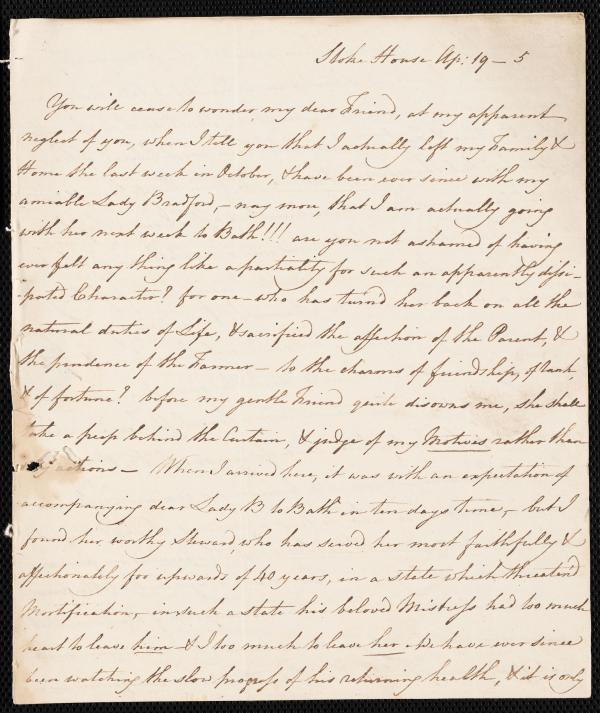 Stoke House Ap: 19 - 5
You will cease to wonder my dear Friend, at my apparent
neglect of you, when I tell you that I actually left my Family &
Home the last week in October, & have been ever since with my
amiable Lady Bradford, - nay more, that I am actually going
with her next week to Bath!!! are you not ashamed of having
ever felt any thing like a partiality for such an apparently dissi-
-pated Character? for one - who has turnd her back on all the
natural duties of Life, & sacrificed the affection of the Parent, &
the prudence of the Farmer - to the charms of friendship, of rank,
& of fortune? before my gentle Friend quite disowns me, she shall
take a peep behind the Curtain, & judge of my Motives rather than
actions - When I arrived here, it was with an expectation of
accompanying dear Lady B to Bath in ten days time, - but I
found her worthy Steward, who has served her most faithfully &
affectionately for upwards of 40 years, in a state which threaten'd
Mortification, - in such a state his beloved Mistress had too much
heart to leave him - & I too much to leave her. We have ever since
been watching the slow progress of his returning health, & it is only